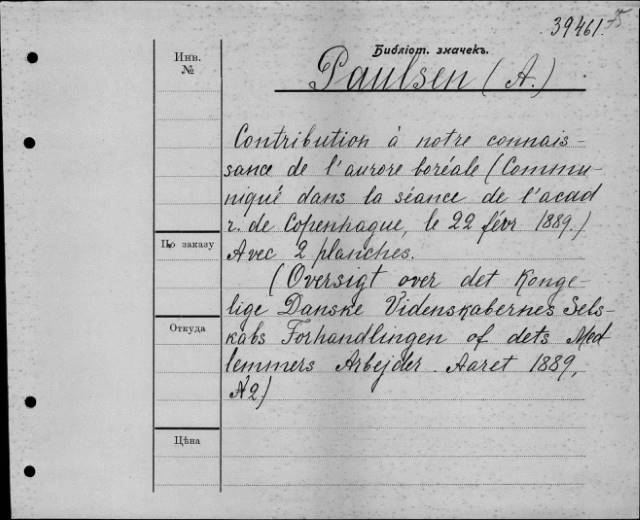 39461.
Библіот. значекъ.
Инв.
№
Paulsen (A.)
Contribution à notre connais-
sance de l'aurore boréale (Commu-
niqué dans la séance de l'acad
r. de Copenhague, le 22 févr 1889.)
По заказу
Avec 2 planches.
(Oversigt over det Konge-
lige Danske Videnskabernes Sels-
Откуда
kabs Forhandlingen of dets Med
lemmers Arbejder. Aaret 1889,
№2.)
Цѣна